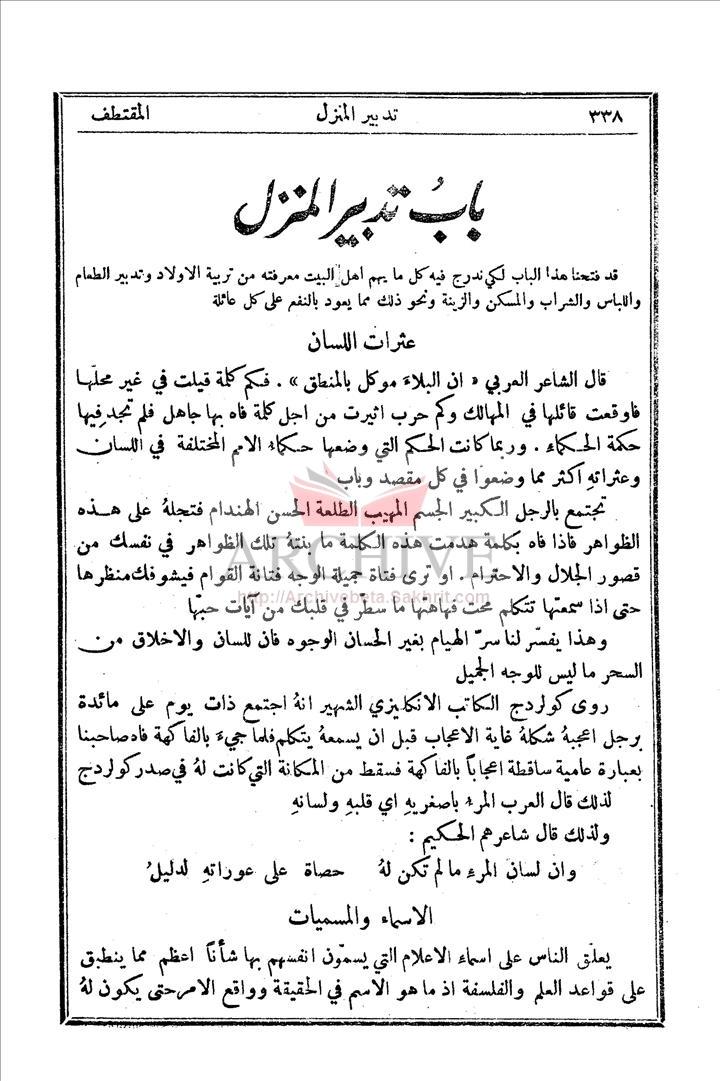 ٣٣٨ تدبير المنزل المقتطف
بابُ تدبير المنزل
قد فتحنا هذا الباب لكي ندرج فيه كل ما يهم اهل البيت معرفته من تربية الاولاد وتدبير الطعام
واللباس والشراب والمسكن والزينة ونحو ذلك مما يعود بالنفع على كل عائلة
عثرات اللسان
قال الشاعر العربي « ان البلاءَ موكل بالمنطق » . فكم كلمة قيلت في غير محلّها
فاوقعت قائلها في المهالك وكم حرب اثيرت من اجل كلمة فاه بها جاهل فلم تجد فيها
حكمة الحكماءِ . وربما كانت الحكم التي وضعها حكماءُ الامم المختلفة في اللسان
وعثراتهِ اكثر مما وضعوا في كل مقصد وباب
تجتمع بالرجل الكبير الجسم المهيب الطلعة الحسن الهندام فتجلهُ على هذه
الظواهر فاذا فاه بكلمة هدمت هذه الكلمة ما بنتهُ تلك الظواهر في نفسك من
قصور الجلال والاحترام . او ترى فتاة جميلة الوجه فتانة القوام فيشوفك منظرها
حتى اذا سمعتها تتكلم محت فهاهتها ما سطّر في قلبك من آيات حبّها
وهذا يفسّر لنا سرّ الهيام بغير الحسان الوجوه فان للسان والاخلاق من
السحر ما ليس للوجه الجميل
روى كولردج الكاتب الانكليزي الشهير انهُ اجتمع ذات يوم على مائدة
برجل اعجبهُ شكلهُ غاية الاعجاب قبل ان يسمعهُ يتكلم فلما جيءَ بالفاكهة فاه صاحبنا
بعبارة عامية ساقطة اعجاباً بالفاكهة فسقط من المكانة التي كانت لهُ في صدر كولردج
لذلك قال العرب المرءُ باصغريهِ اي قلبهِ ولسانهِ
ولذلك قال شاعرهم الحكيم :
وان لسان المرءِ ما لم تكن لهُ حصاة على عوراتهِ لدليلُ
الاسماء والمسميات
يعلّق الناس على اسماءِ الاعلام التي يسمّون انفسهم بها شأناً اعظم مما ينطبق
على قواعد العلم والفلسفة اذ ما هو الاسم في الحقيقة وواقع الامر حتى يكون لهُ
ARCHIVE
http://Archivebeta.Sakhrit.com